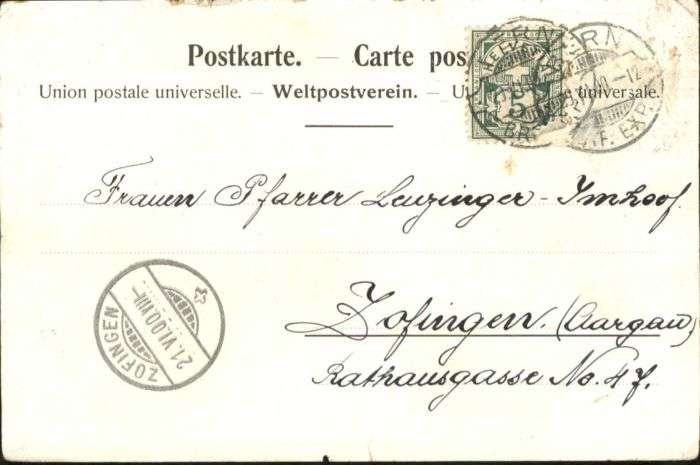 Postkarte. — Carte pos
Union postale universelle. — Weltpostverein. — U universale.
5
BERN
BR F. EXP.
Frauen Pfarrer Leuzinger-Imhoof.
Zofingen. (Aargau)
Rathausgasse No. 47.
ZOFINGEN
21.VI.00.VIII—